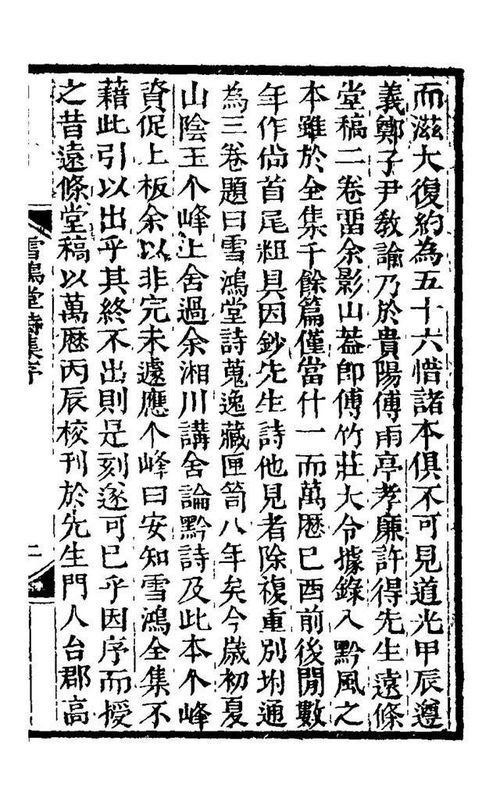 而滋大復約為五十六惜諸本俱不可見道光甲辰遵
義鄭子尹敎諭乃於貴陽傅雨亭孝廉許得先生遠條
堂稿二卷畱余影山葢即傅竹莊大令據錄入黔風之
本雖於全集千餘篇僅當什一而萬曆巳酉前後閒數
年作尙首尾粗具因鈔先生詩他見者除複重別坿通
為三卷題曰雪鴻堂詩蒐逸藏匣笥八年矣今歲初夏
山陰王个峰上舍過余湘川講舍論黔詩及此本个峰
資促上板余以非完未遽應个峰曰安知雪鴻全集不
藉此引以出乎其終不出則是刻遂可巳乎因序而授
之昔遠條堂稿以萬曆丙辰校刊於先生門人台郡高
雪鴻堂詩集序
二